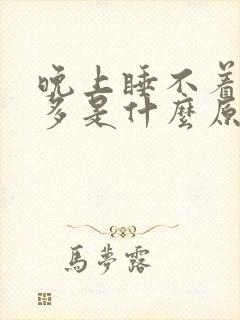 晚上睡不着
多是什麼原
馬夢露